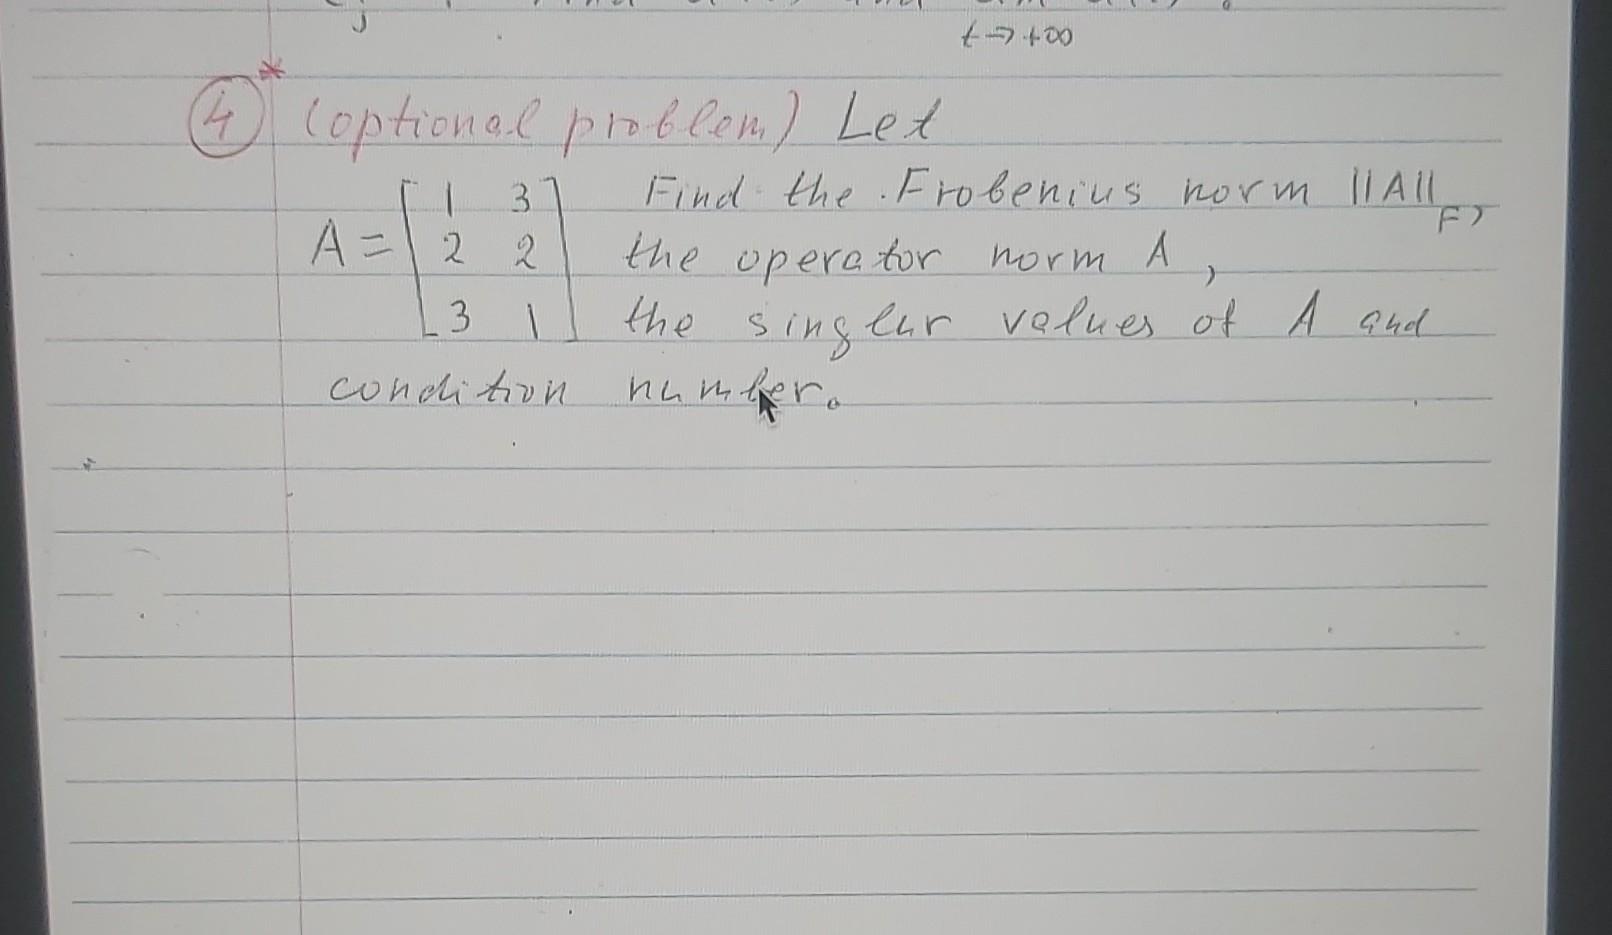 t → +∞
④* (optional problem) Let
A = [1 3 Find the Frobenius norm ||A||_F,
2 2 the operator norm A,
3 1] the singlur values of A and
condition number.